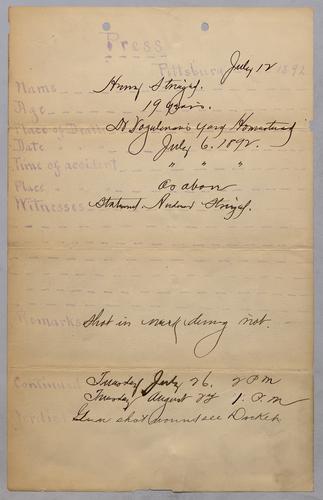 Press
Pittsburg July 12 1892
Name Henry Striegel.
Age 19 years.
Place of Death Yard Homestead
Date July 6, 1892.
Time of accident " " "
Place As above
Witnesses Statement. Striegel.
Remarks Shot in neck during riot.
Continued Tuesday July 26. 2 PM
Tuesday August 1. P.M
Verdict Gun shot wound see Docket